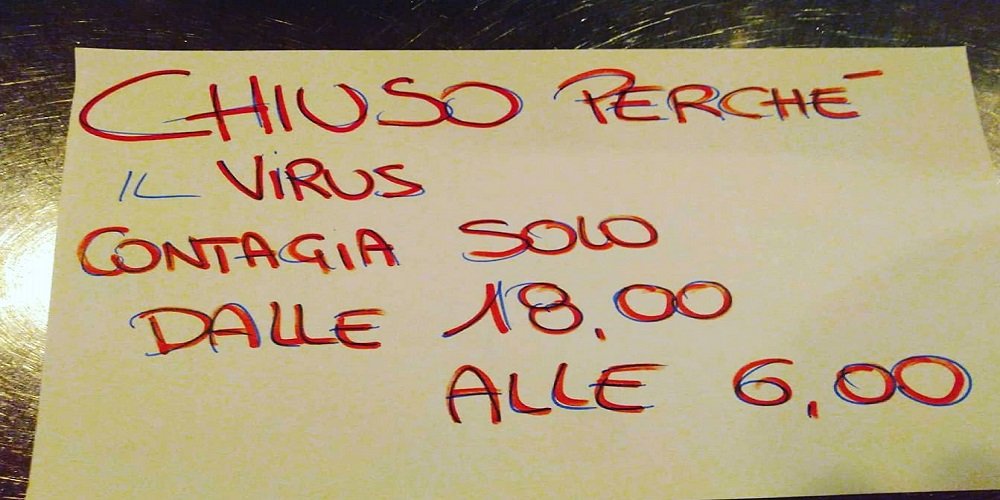 CHIUSO PERCHÉ
IL VIRUS
CONTAGIA SOLO
DALLE 18.00
ALLE 6,00